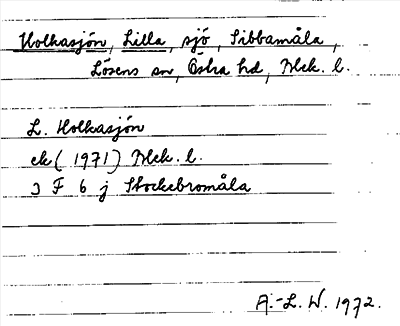 Holkasjön, Lilla, sjö, Sibbamåla,
Lösens sn, Östra hd, Blek. l.
L. Holkasjön
ek (1971) Blek. l.
3 F 6 j Stockebromåla
A.-L. W. 1972.